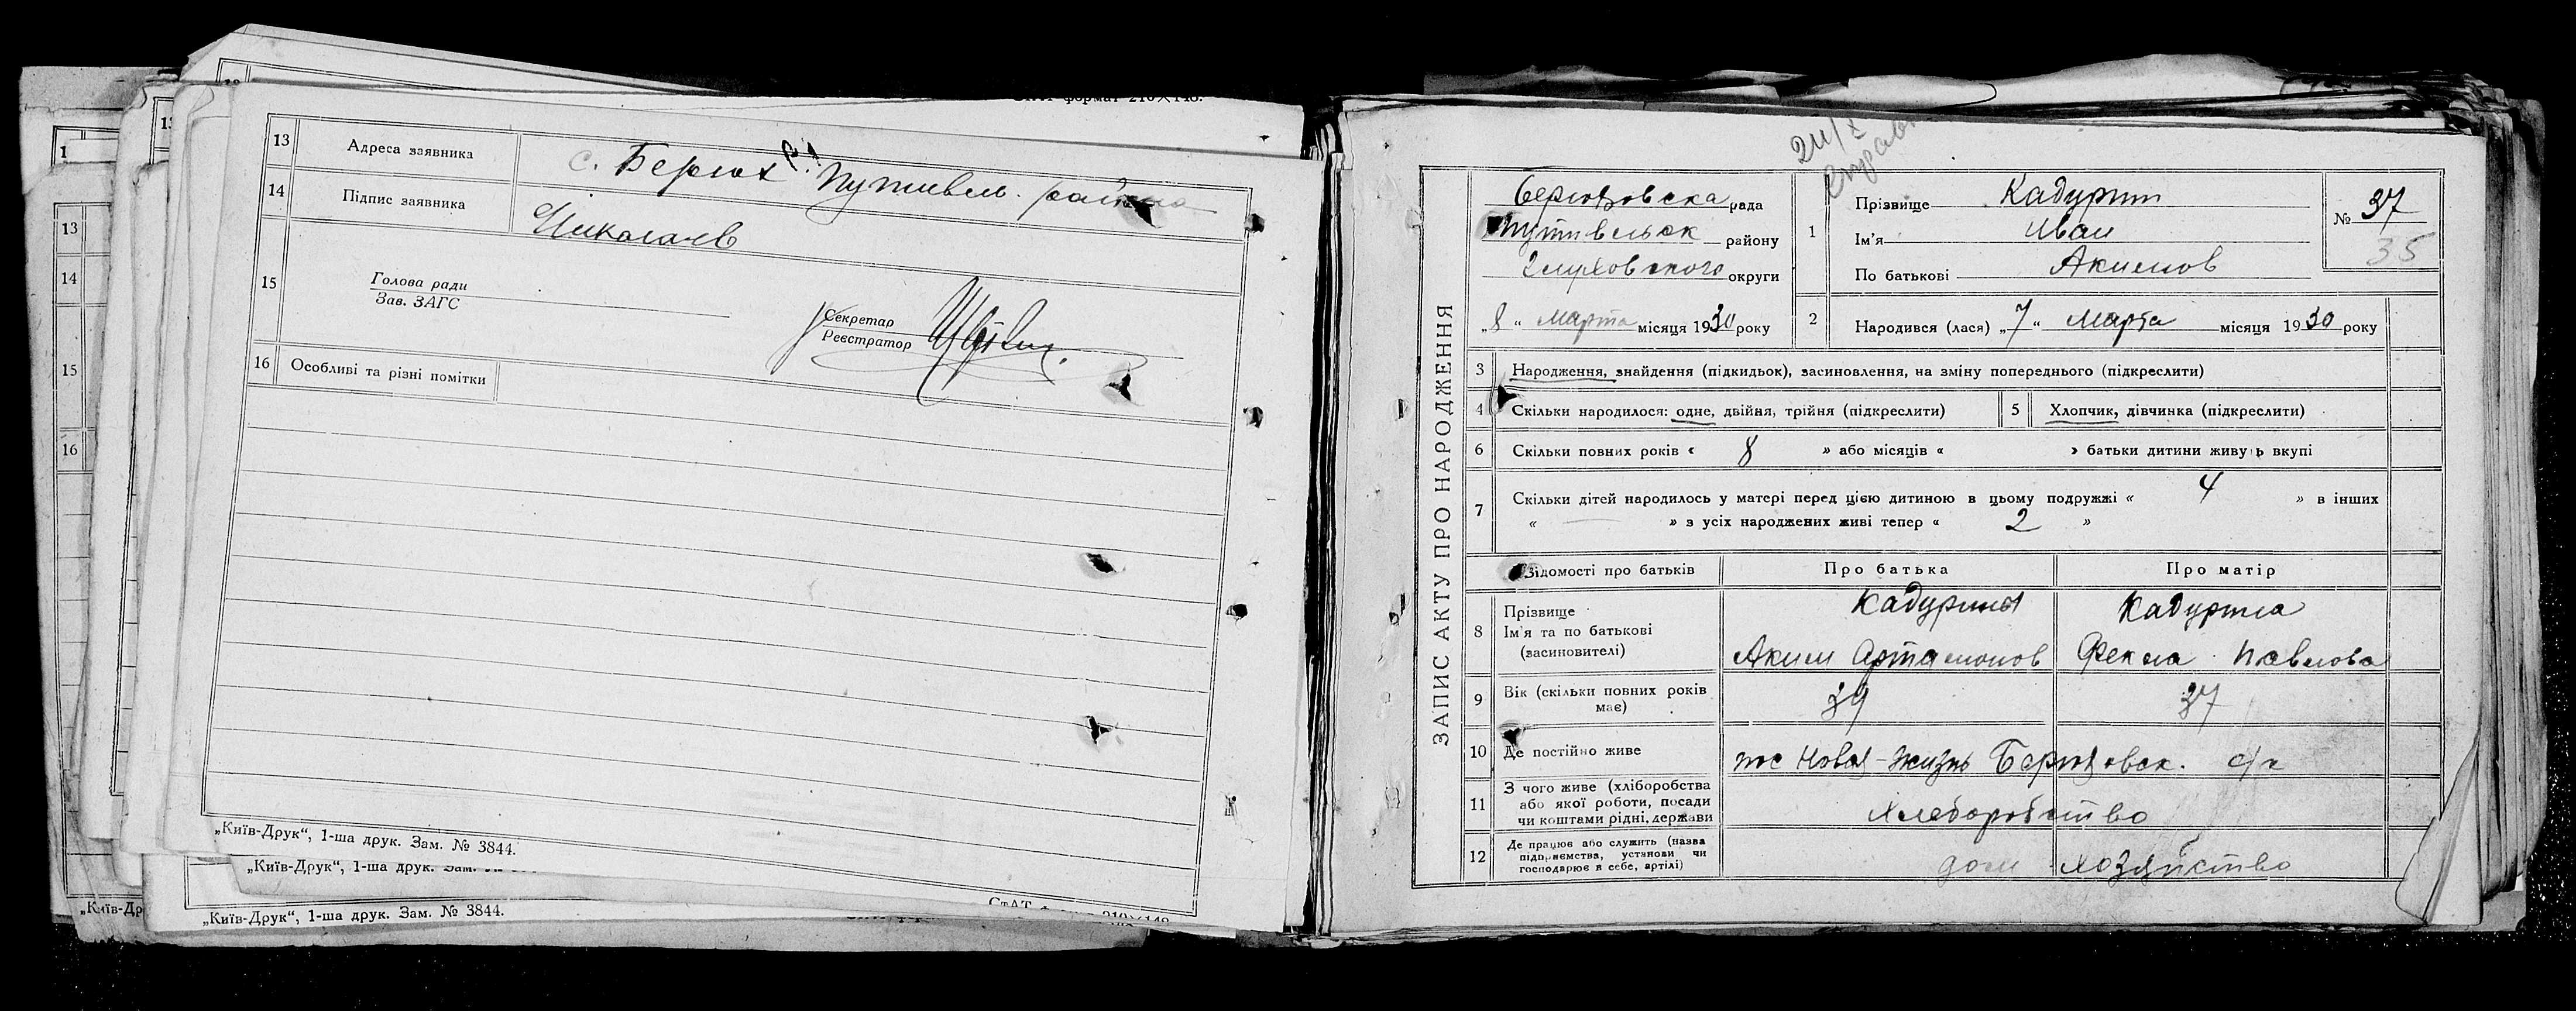 13 Адреса заявника с. Берюх Путивель. района
14 Підпис заявника Николаев
15 Голова ради
Зав. ЗАГС
Секретар
Реєстратор
16 Особливі та різні помітки
„Київ-Друк“, 1-ша друк. Зам. № 3844.
„Київ-Друк“, 1-ша друк. Зам.
„Київ-Друк“, 1-ша друк. Зам. № 3844.
13
14
15
16
1
24/X
ЗАПИС АКТУ ПРО НАРОДЖЕННЯ
Берюховска рада
Путивльск району
Глуховского округи
„8“ марта місяця 1930 року
1 Прізвище Кадурин
Ім'я Иван
По батькові Акимов
№ 37
35
2 Народився (лася) „7“ Марта місяця 1930 року
3 Народження, знайдення (підкидьок), засиновлення, на зміну попереднього (підкреслити)
4 Скільки народилося: одне, двійня, трійня (підкреслити) 5 Хлопчик, дівчинка (підкреслити)
6 Скільки повних років « 8 » або місяців « » батьки дитини живуть вкупі
7 Скільки дітей народилось у матері перед цією дитиною в цьому подружжі « 4 » в інших
« — » з усіх народжених живі тепер « 2 »
Відомості про батьків Про батька Про матір
8 Прізвище
Ім'я та по батькові
(засиновителі)
Кадурин Кадурина
Аким Артамонов Фекла Павлова
9 Вік (скільки повних років має) 39 37
10 Де постійно живе пос Новая-Жизнь Берюховск. с/р
11 З чого живе (хліборобства
або якої роботи, посади
чи коштами рідні, держави
Хлеборобство
12 Де працює або служить (назва
підприємства, установи чи
господарює в себе, артілі)
дом. хозяйство